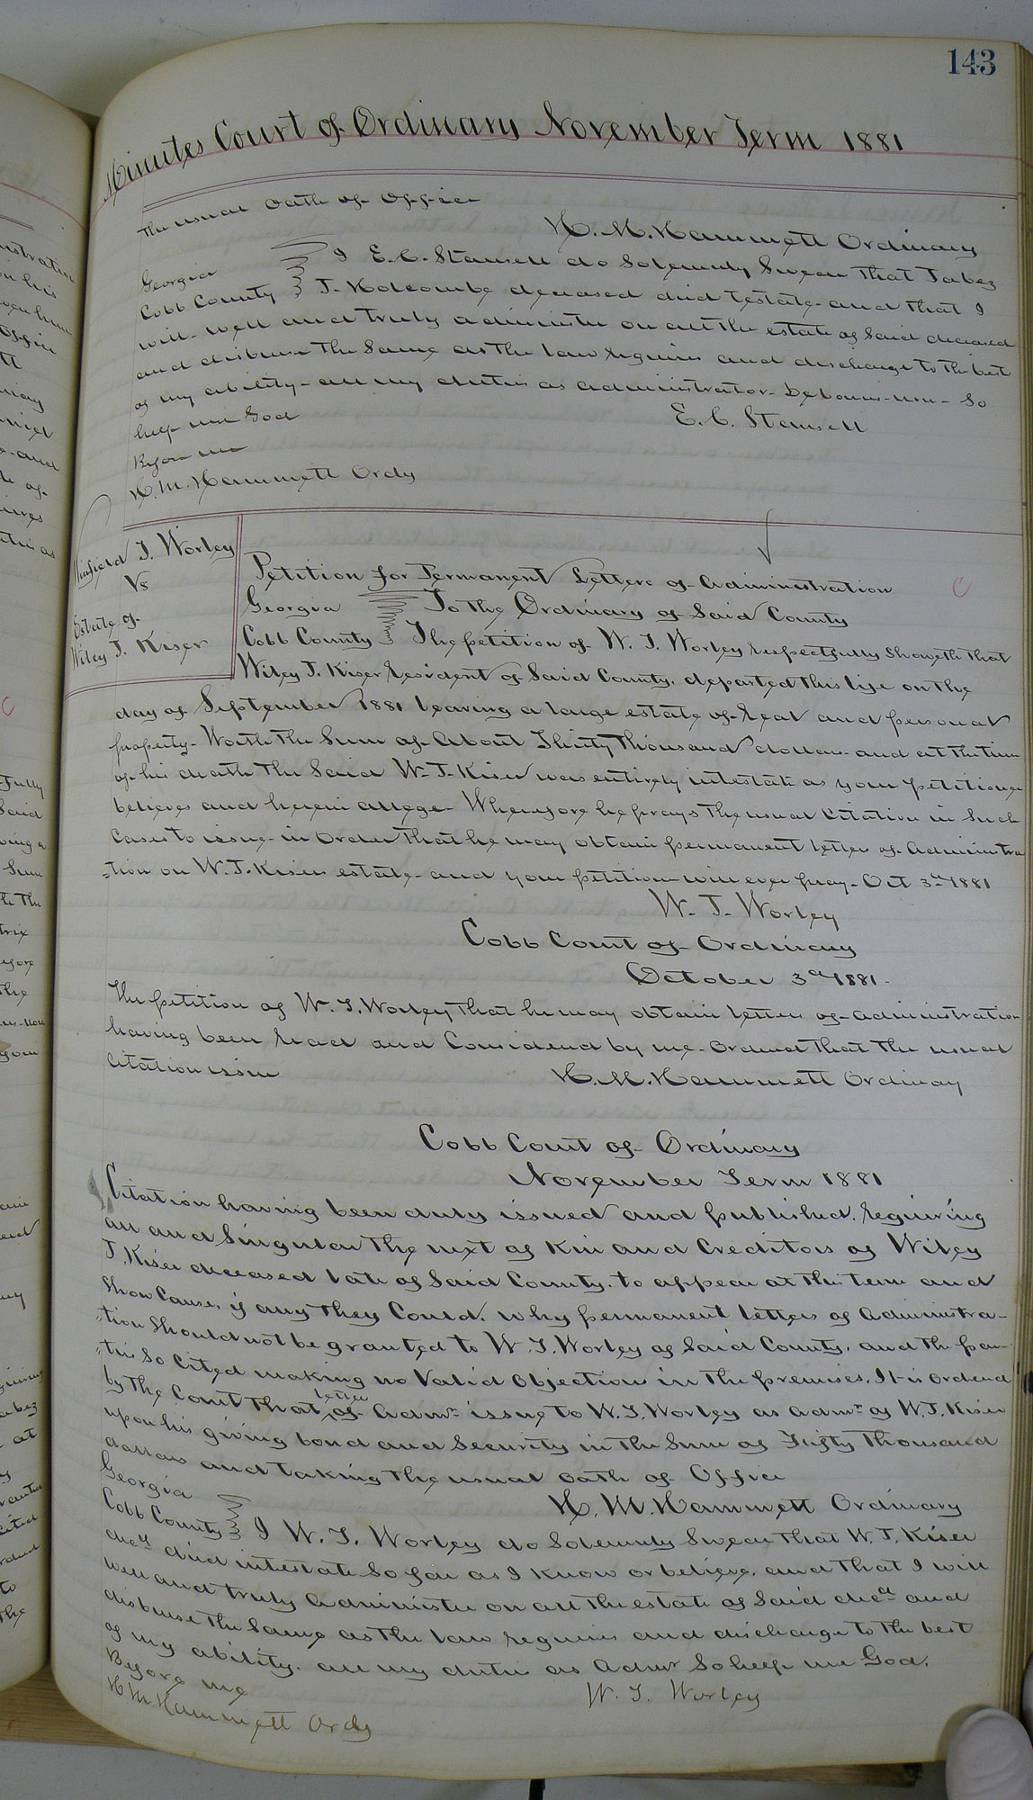 143
Minutes Court of Ordinary November Term 1881
The usual oath of office
H. M. Hammett Ordinary
Georgia
Cobb County
I E. C. Stansell do Solemnly Swear that Jabez
J. Holcombe deceased died testate and that I
will well and truly administer on all the estate of said deceased
and disburse the same as the law requires and discharge to the best
of my ability all my duties as administrator De bonis non So
help me God
E. C. Stansell
Before me
H. M. Hammett Ordy
Winfield J. Worley
Vs
Estate of
Wiley J. Kiser
Petition for Permanent Letters of Administration
Georgia
To the Ordinary of Said County
Cobb County
The petition of W. J. Worley respectfully Showeth that
Wiley J. Kiser resident of Said County, departed this life on the
day of September 1881 leaving a large estate of real and personal
property Worth the Sum of about Thirty Thousand dollars and at the time
of his death the said W. J. Kiser was entirely intestate as your petitioner
believes and herein allege Wherefore he prays the usual citation in Such
Cases to issue in order that he may obtain permanent letters of administra
=tion on W. J. Kisers estate and your petitioner will ever pray Oct 3rd 1881
W. J. Worley
Cobb Court of Ordinary
October 3rd 1881.
The petition of W. J. Worley that he may obtain letters of administration
having been read and Considered by me ordered that the usual
citation issue
H. M. Hammett Ordinary
Cobb Court of Ordinary
November Term 1881
Citation having been duly issued and published, requiring
all and Singular the next of Kin and Creditors of Wiley
J. Kiser deceased late of Said County, to appear at this term and
Show Cause, if any they Could, why permanent letters of administra-
=tion should not be granted to W. J. Worley of Said County, and the par-
=ties so cited making no Valid objection in the premises, It is ordered
by the Court that letters of Admr issue to W. J. Worley as admr of W. J. Kiser
upon his giving bond and Security in the Sum of Fifty Thousand
dollars and taking the usual oath of Office
H. M. Hammett Ordinary
Georgia
Cobb County
I W. J. Worley do Solemnly Swear that W. J. Kiser
decd died intestate So far as I know or believe, and that I will
well and truly administer on all the estate of said decd and
disburse the same as the law requires and discharge to the best
of my ability, all my duties as Admr So help me God.
W. J. Worley
Before me
H M Hammett Ordy